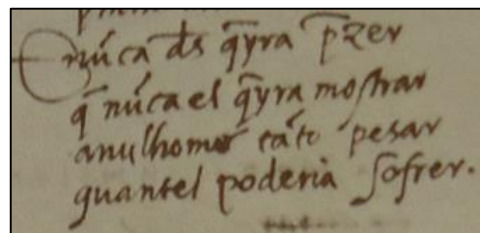 E nũca ds̄ q̄yra p̄zer
q̄ nũca el q̄yra mostrar
anulhome tãto pesar
quantel poderia sofrer.